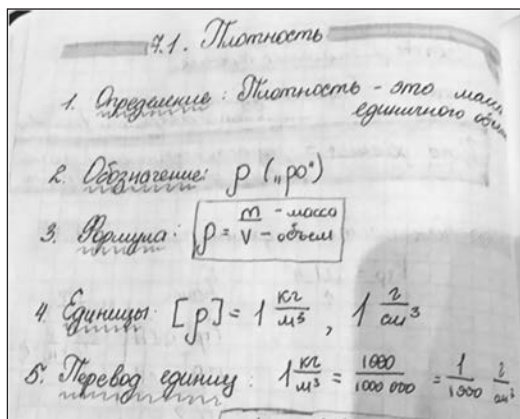 7.1. Плотность
1. Определение: Плотность - это
единичного
2. Обозначение: ρ („ро“)
3. Формула: ρ = m/V m - масса V - объем
4. Единицы: [ρ] = 1 кг/м³, 1 г/см³
5. Перевод единиц: 1 кг/м³ = 1000/1000 000 = 1/1000 г/см³